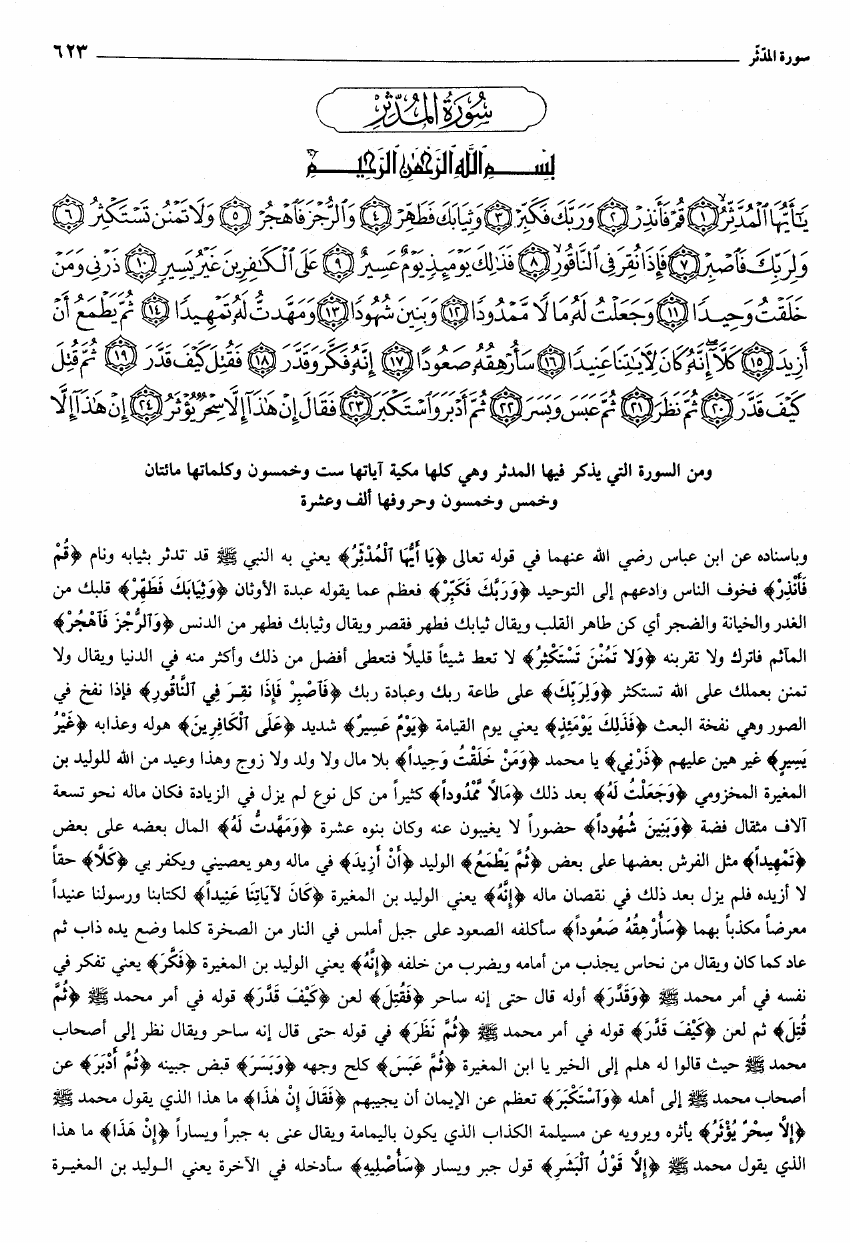 سورة المدّثّر ٦٢٣
سُورَةُ المُدَّثِّرِ
بِسْمِ اللَّهِ الرَّحْمَٰنِ الرَّحِيمِ
يَٰٓأَيُّهَا ٱلْمُدَّثِّرُ ١ قُمْ فَأَنذِرْ ٢ وَرَبَّكَ فَكَبِّرْ ٣ وَثِيَابَكَ فَطَهِّرْ ٤ وَٱلرُّجْزَ فَٱهْجُرْ ٥ وَلَا تَمْنُن تَسْتَكْثِرُ ٦
وَلِرَبِّكَ فَٱصْبِرْ ٧ فَإِذَا نُقِرَ فِى ٱلنَّاقُورِ ٨ فَذَٰلِكَ يَوْمَئِذٍ يَوْمٌ عَسِيرٌ ٩ عَلَى ٱلْكَٰفِرِينَ غَيْرُ يَسِيرٍ ١٠ ذَرْنِى وَمَنْ
خَلَقْتُ وَحِيدًا ١١ وَجَعَلْتُ لَهُۥ مَالًا مَّمْدُودًا ١٢ وَبَنِينَ شُهُودًا ١٣ وَمَهَّدتُّ لَهُۥ تَمْهِيدًا ١٤ ثُمَّ يَطْمَعُ أَنْ
أَزِيدَ ١٥ كَلَّآ إِنَّهُۥ كَانَ لِأَيَٰتِنَا عَنِيدًا ١٦ سَأُرْهِقُهُۥ صَعُودًا ١٧ إِنَّهُۥ فَكَّرَ وَقَدَّرَ ١٨ فَقُتِلَ كَيْفَ قَدَّرَ ١٩ ثُمَّ قُتِلَ
كَيْفَ قَدَّرَ ٢٠ ثُمَّ نَظَرَ ٢١ ثُمَّ عَبَسَ وَبَسَرَ ٢٢ ثُمَّ أَدْبَرَ وَٱسْتَكْبَرَ ٢٣ فَقَالَ إِنْ هَٰذَآ إِلَّا سِحْرٌ يُؤْثَرُ ٢٤ إِنْ هَٰذَآ إِلَّا
ومن السورة التي يذكر فيها المدثر وهي كلها مكية آياتها ست وخمسون وكلماتها مائتان
وخمس وخمسون وحروفها ألف وعشرة
وباسناده عن ابن عباس رضي الله عنهما في قوله تعالى ﴿يَا أَيُّهَا ٱلْمُدَّثِّرُ﴾ يعني به النبي ﷺ قد تدثر بثيابه ونام ﴿قُمْ
فَأَنْذِرْ﴾ فخوف الناس وادعهم إلى التوحيد ﴿وَرَبَّكَ فَكَبِّرْ﴾ فعظم عما يقوله عبدة الأوثان ﴿وَثِيَابَكَ فَطَهِّرْ﴾ قلبك من
الغدر والخيانة والضجر أي كن طاهر القلب ويقال ثيابك فطهر فقصر ويقال وثيابك فطهر من الدنس ﴿وَٱلرُّجْزَ فَٱهْجُرْ﴾
المآثم فاترك ولا تقربنه ﴿وَلَا تَمْنُنْ تَسْتَكْثِرُ﴾ لا تعط شيئاً قليلًا فتعطى أفضل من ذلك وأكثر منه في الدنيا ويقال ولا
تمنن بعملك على الله تستكثر ﴿وَلِرَبِّكَ﴾ على طاعة ربك وعبادة ربك ﴿فَٱصْبِرْ فَإِذَا نُقِرَ فِي ٱلنَّاقُورِ﴾ فإذا نفخ في
الصور وهي نفخة البعث ﴿فَذَلِكَ يَوْمَئِذٍ﴾ يعني يوم القيامة ﴿يَوْمٌ عَسِيرٌ﴾ شديد ﴿عَلَى ٱلْكَافِرِينَ﴾ هوله وعذابه ﴿غَيْرُ
يَسِيرٍ﴾ غير هين عليهم ﴿ذَرْنِي﴾ يا محمد ﴿وَمَنْ خَلَقْتُ وَحِيداً﴾ بلا مال ولا ولد ولا زوج وهذا وعيد من الله للوليد بن
المغيرة المخزومي ﴿وَجَعَلْتُ لَهُ﴾ بعد ذلك ﴿مَالاً مَمْدُوداً﴾ كثيراً من كل نوع لم يزل في الزيادة فكان ماله نحو تسعة
آلاف مثقال فضة ﴿وَبَنِينَ شُهُوداً﴾ حضوراً لا يغيبون عنه وكان بنوه عشرة ﴿وَمَهَّدتُ لَهُ﴾ المال بعضه على بعض
﴿تَمْهِيداً﴾ مثل الفرش بعضها على بعض ﴿ثُمَّ يَطْمَعُ﴾ الوليد ﴿أَنْ أَزِيدَ﴾ في ماله وهو يعصيني ويكفر بي ﴿كَلَّا﴾ حقاً
لا أزيده فلم يزل بعد ذلك في نقصان ماله ﴿إِنَّهُ﴾ يعني الوليد بن المغيرة ﴿كَانَ لآيَاتِنَا عَنِيداً﴾ لكتابنا ورسولنا عنيداً
معرضاً مكذباً بهما ﴿سَأُرْهِقُهُ صَعُوداً﴾ سأكلفه الصعود على جبل أملس في النار من الصخرة كلما وضع يده ذاب ثم
عاد كما كان ويقال من نحاس يجذب من أمامه ويضرب من خلفه ﴿إِنَّهُ﴾ يعني الوليد بن المغيرة ﴿فَكَّرَ﴾ يعني تفكر في
نفسه في أمر محمد ﷺ ﴿وَقَدَّرَ﴾ أوله قال حتى إنه ساحر ﴿فَقُتِلَ﴾ لعن ﴿كَيْفَ قَدَّرَ﴾ قوله في أمر محمد ﷺ ﴿ثُمَّ
قُتِلَ﴾ ثم لعن ﴿كَيْفَ قَدَّرَ﴾ قوله في أمر محمد ﷺ ﴿ثُمَّ نَظَرَ﴾ في قوله حتى قال إنه ساحر ويقال نظر إلى أصحاب
محمد ﷺ حيث قالوا له هلم إلى الخير يا ابن المغيرة ﴿ثُمَّ عَبَسَ﴾ كلح وجهه ﴿وَبَسَرَ﴾ قبض جبينه ﴿ثُمَّ أَدْبَرَ﴾ عن
أصحاب محمد ﷺ إلى أهله ﴿وَٱسْتَكْبَرَ﴾ تعظم عن الإيمان أن يجيبهم ﴿فَقَالَ إِنْ هٰذَا﴾ ما هذا الذي يقول محمد ﷺ
﴿إِلَّا سِحْرٌ يُؤْثَرُ﴾ يأثره ويرويه عن مسيلمة الكذاب الذي يكون باليمامة ويقال عنى به جبراً ويساراً ﴿إِنْ هَذَا﴾ ما هذا
الذي يقول محمد ﷺ ﴿إِلَّا قَوْلُ ٱلْبَشَرِ﴾ قول جبر ويسار ﴿سَأُصْلِيهِ﴾ سأدخله في الآخرة يعني الوليد بن المغيرة